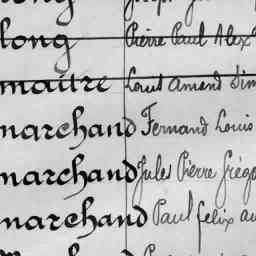 long Pierre Paul Alex
maitre Louis Amand Sim
marchand Fernand Louis
marchand Jules Pierre Grégo
marchand Paul felix au